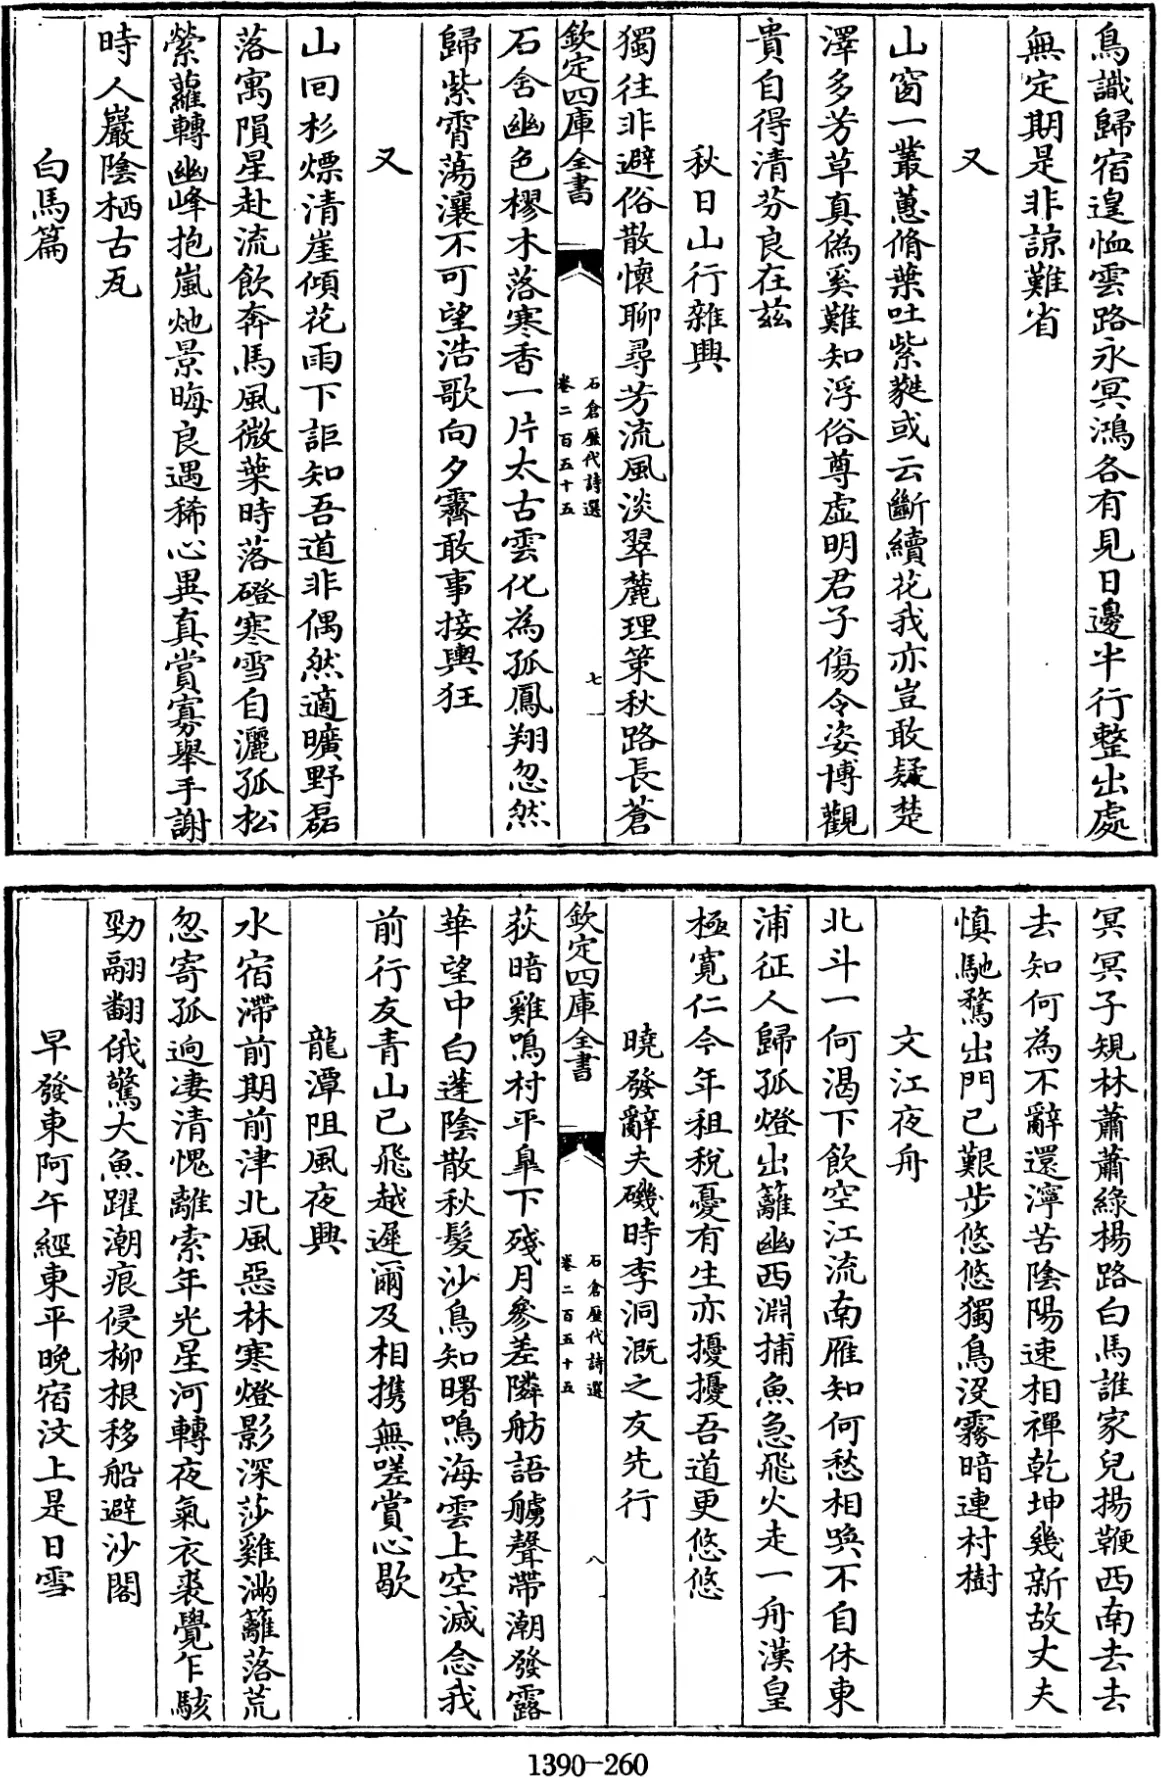 鳥識歸宿遑恤雲路永冥鴻各有見日邊半行整出處
無定期是非諒難省
又
山窗一叢蕙脩葉吐紫蕤或云斷續花我亦豈敢疑楚
澤多芳草真僞奚難知浮俗尊虛明君子傷令姿博觀
貴自得清芬良在茲
秋日山行雜興
獨往非避俗散懷聊尋芳流風淡翠麓理策秋路長蒼
欽定四庫全書
石倉歷代詩選
卷二百五十五
七
石含幽色樛木落寒香一片太古雲化為孤鳳翔忽然
歸紫霄蕩瀼不可望浩歌向夕霽敢事接輿狂
又
山回杉熛清崖傾花雨下詎知吾道非偶然適曠野磊
落寓隕星赴流飲奔馬風微葉時落磴寒雪自灑孤松
縈蘿轉幽峰抱嵐灺景晦良遇稀心異真賞寡舉手謝
時人巖陰栖古瓦
白馬篇
冥冥子規林蕭蕭綠楊路白馬誰家兒揚鞭西南去去
去知何為不辭還濘苦陰陽速相禪乾坤幾新故丈夫
慎馳騖出門已艱步悠悠獨鳥沒霧暗連村樹
文江夜舟
北斗一何渴下飲空江流南雁知何愁相喚不自休東
浦征人歸孤燈出籬幽西淵捕魚急飛火走一舟漢皇
極寬仁今年租稅憂有生亦擾擾吾道更悠悠
曉發辭夫磯時李洞溉之友先行
欽定四庫全書
石倉歷代詩選
卷二百五十五
八
荻暗雞鳴村平臯下殘月參差隣舫語艣聲帶潮發露
華望中白蓬陰散秋髮沙鳥知曙鳴海雲上空滅念我
前行友青山已飛越遲爾及相携無嗟賞心歇
龍潭阻風夜興
水宿滯前期前津北風惡林寒燈影深莎雞滿籬落荒
忽寄孤逈凄清愧離索年光星河轉夜氣衣裘覺乍駭
勁翮翻俄驚大魚躍潮痕侵柳根移船避沙閣
早發東阿午經東平晚宿汶上是日雪
1390—260